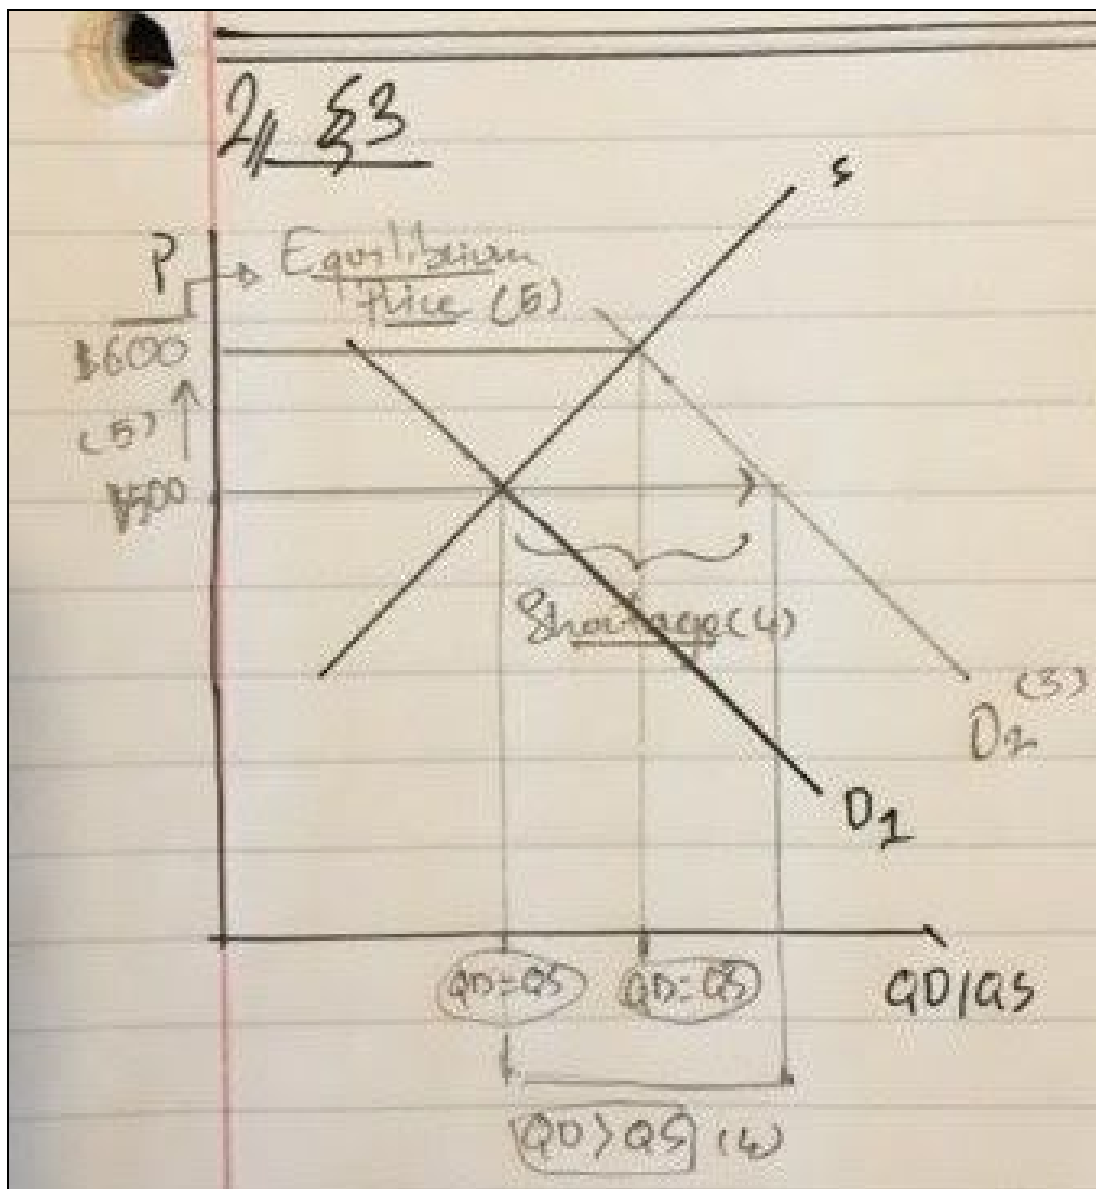 2,, §3
S
P → Equilibrium
Price (5)
$600
(5) ↑
$500
Shortage (4)
(3)
D2
D1
QD=QS QD=QS QD/QS
QD>QS (4)